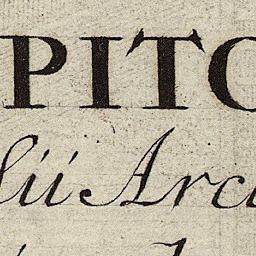 PITO
lii Arc